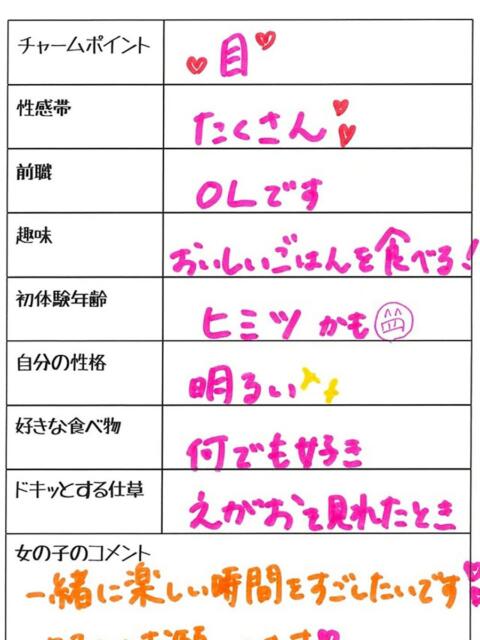 チャームポイント
目
性感帯
たくさん
前職
OLです
趣味
おいしいごはんを食べる!
初体験年齢
ヒミツかも
自分の性格
明るい
好きな食べ物
何でも好き
ドキッとする仕草
えがおを見れたとき
女の子のコメント
一緒に楽しい時間をすごしたいです